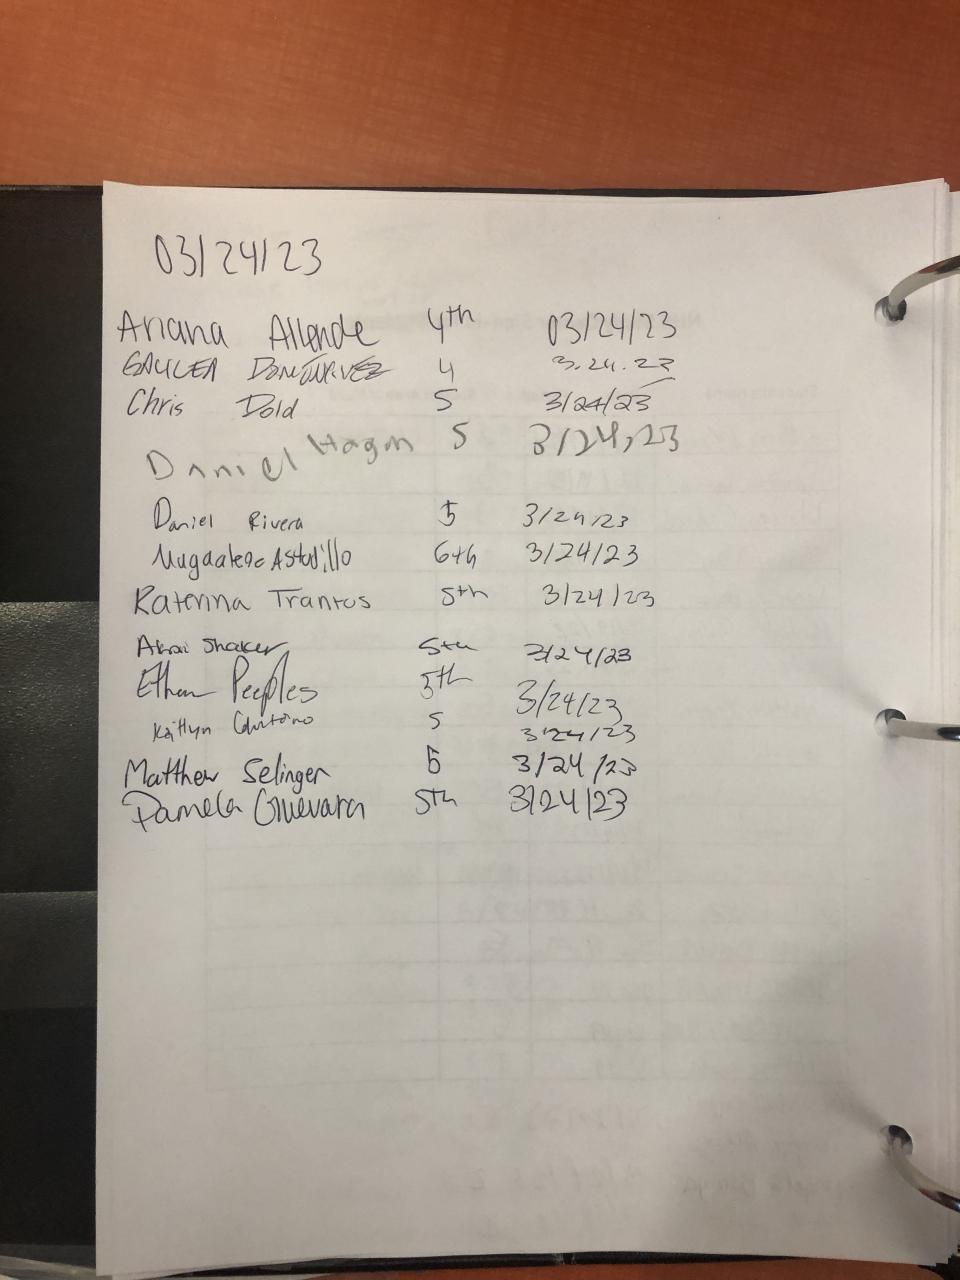 03/24/23
Ariana Allende 4th 03/24/23
4 3.24.23
Chris Dold 5 3/24/23
Daniel Hagan 5 3/24,23
Daniel Rivera 5 3/24/23
Astudillo 6th 3/24/23
Katerina Trantos 5th 3/24/23
Shaker 5th 3/24/23
Ethan Peeples 5th 3/24/23
Kaitlyn 5 3/24/23
Matthew Selinger 5 3/24/23
Pamela Guevara 5th 3/24/23